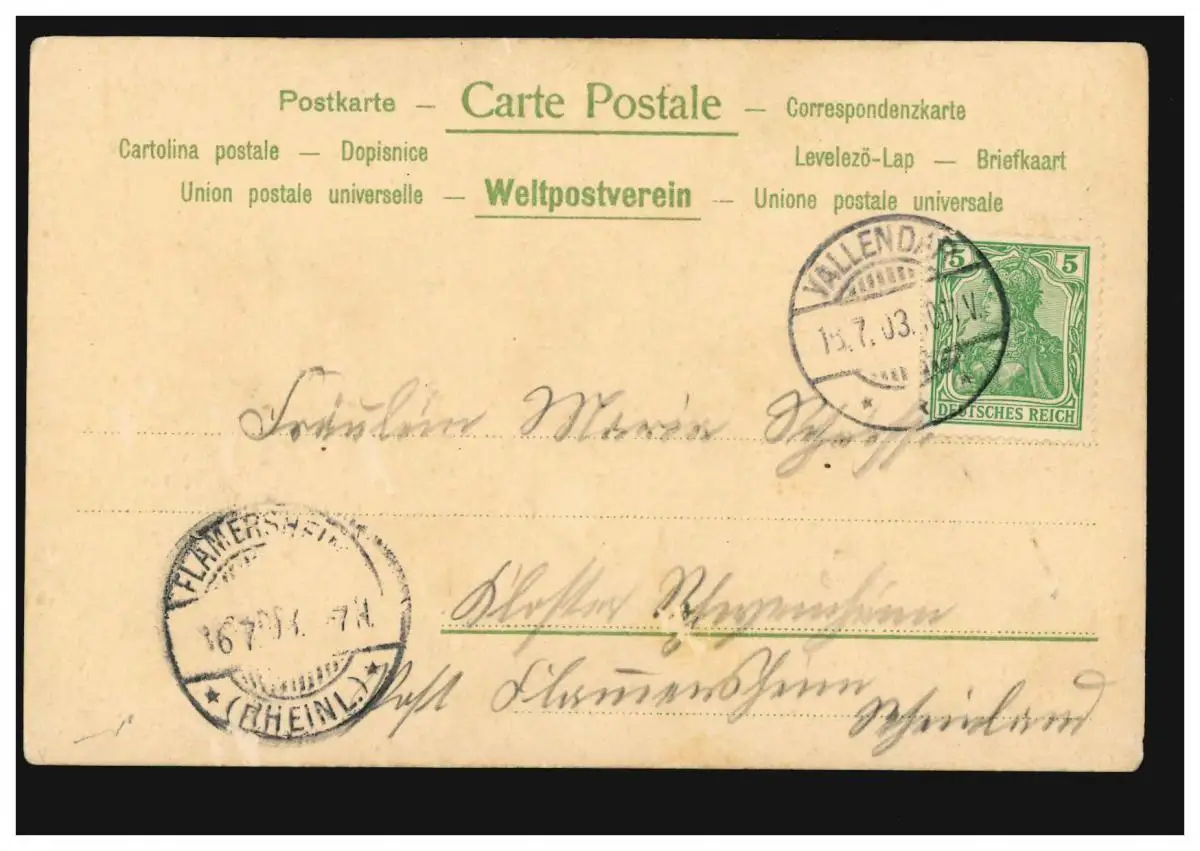 Postkarte — Carte Postale — Correspondenzkarte
Cartolina postale — Dopisnice Levelezö-Lap — Briefkaart
Union postale universelle — Weltpostverein — Unione postale universale
VALLENDAR
.7.03. V.
5 5
DEUTSCHES REICH
Fräulein Maria
FLAMERSHEIM
7.03. 7-
(RHEINL.)
Kloster
Post Flamersheim
Rheinland